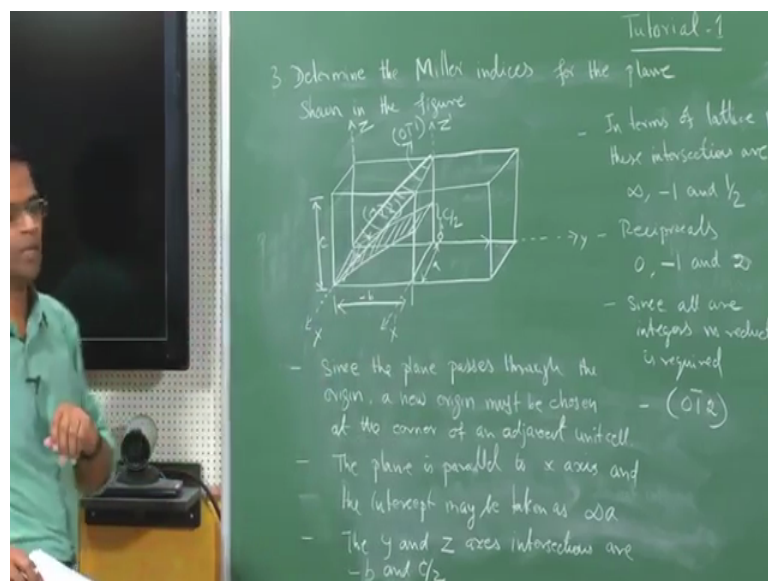 Tutorial-1
3. Determine the Miller indices for the plane
shown in the figure
Z
Z'
(01̅1)
C/2
C
a
y
-b
X
X'
- Since the plane passes through the
origin, a new origin must be chosen
at the corner of an adjacent unit cell
- The plane is parallel to x axis and
the intercept may be taken as ∞a
- The y and z axes intersections are
-b and C/2
- In terms of lattice
these intersections are
∞, -1 and 1/2
- Reciprocals
0, -1 and 2
- Since all are
integers no reduct
is required
- (01̅2)